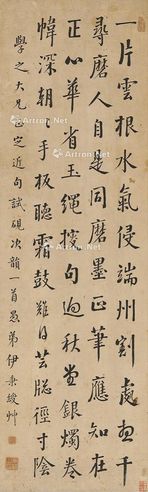 一片雲根水氣侵端州割處直千
尋磨人自是同磨墨正筆應知在
正心華省玉繩句迥秋堂銀燭卷
幃深朝手板聽霜鼓難得芸牕徑寸陰
學之大兄正近句試硯次韻一首愚弟伊秉綬艸
Artron.Net
Artron.Net